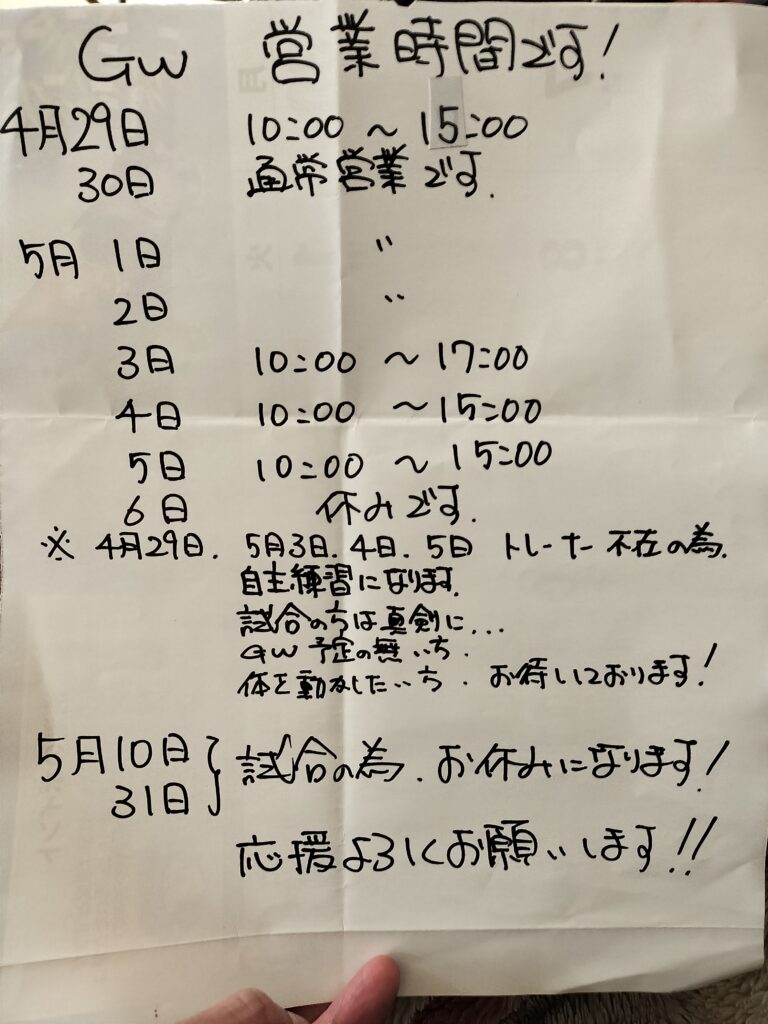 GW 営業時間です!
4月29日 10:00 ~ 15:00
30日 通常営業です.
5月 1日 〃
2日 〃
3日 10:00 ~ 17:00
4日 10:00 ~ 15:00
5日 10:00 ~ 15:00
6日 休みです.
※ 4月29日. 5月3日. 4日. 5日 トレーナー不在の為.
自主練習になります.
試合のちは真剣に...
GW 予定の無いち.
体を動かしたいち. お待ちしております!
5月10日
31日 } 試合の為. お休みになります!
応援よろしくお願いします!!